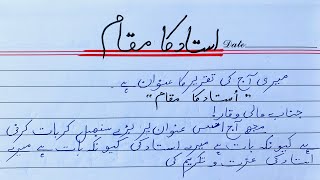 استاد کا مقام
Date
میری آج کی تقریر کا عنوان ہے۔
"استاد کا مقام"
جناب عالی وقار!
مجھے آج اس عنوان لب لیزے سنبھل کر بات کرنی
ہے کیونکہ بات ہے میرے استاد کی کیونکہ بات ہے میرے
استاد کی عزت و تکریم کی